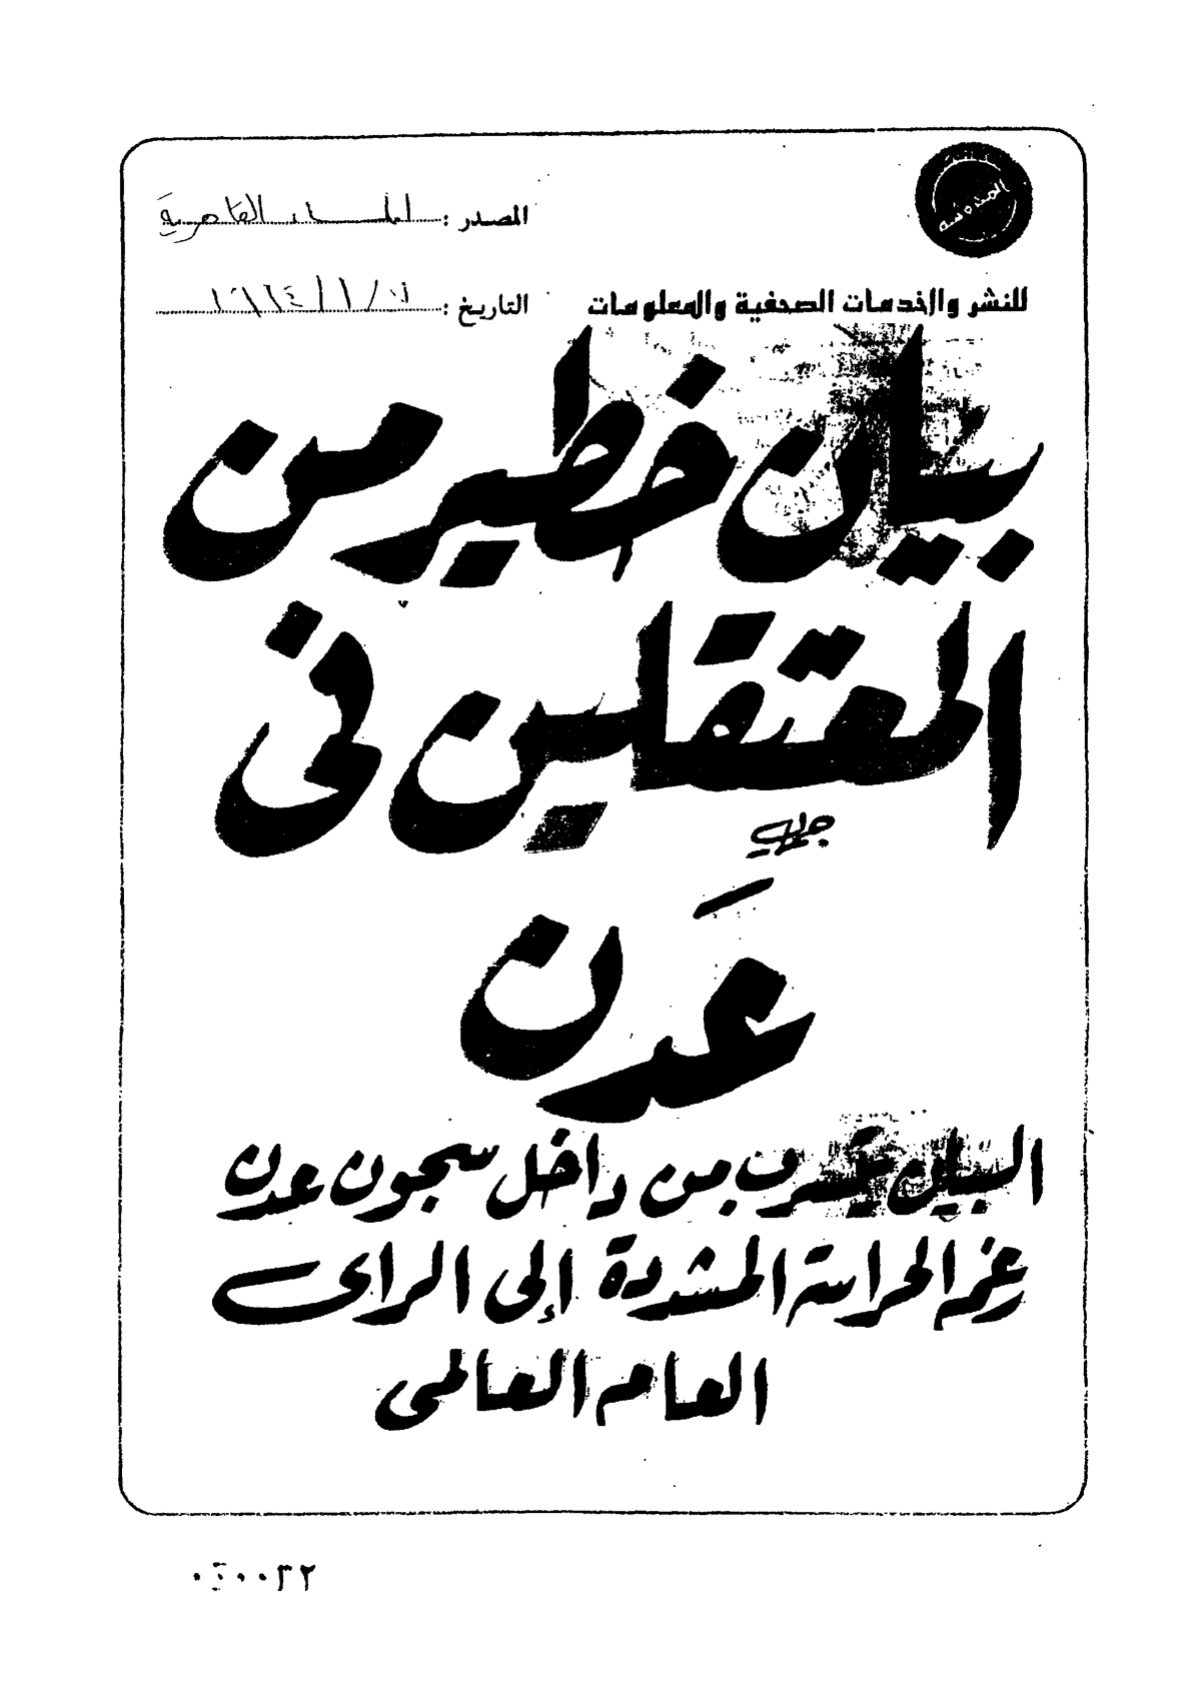 المصدر : المساء القاهرية
للنشر والخدمات الصحفية والمعلومات
التاريخ :
بيان خطير من
المعتقلين فى
عدن
البيان يتسرب من داخل سجون عدن
رغم الحراسة المشددة إلى الراى
العام العالمى